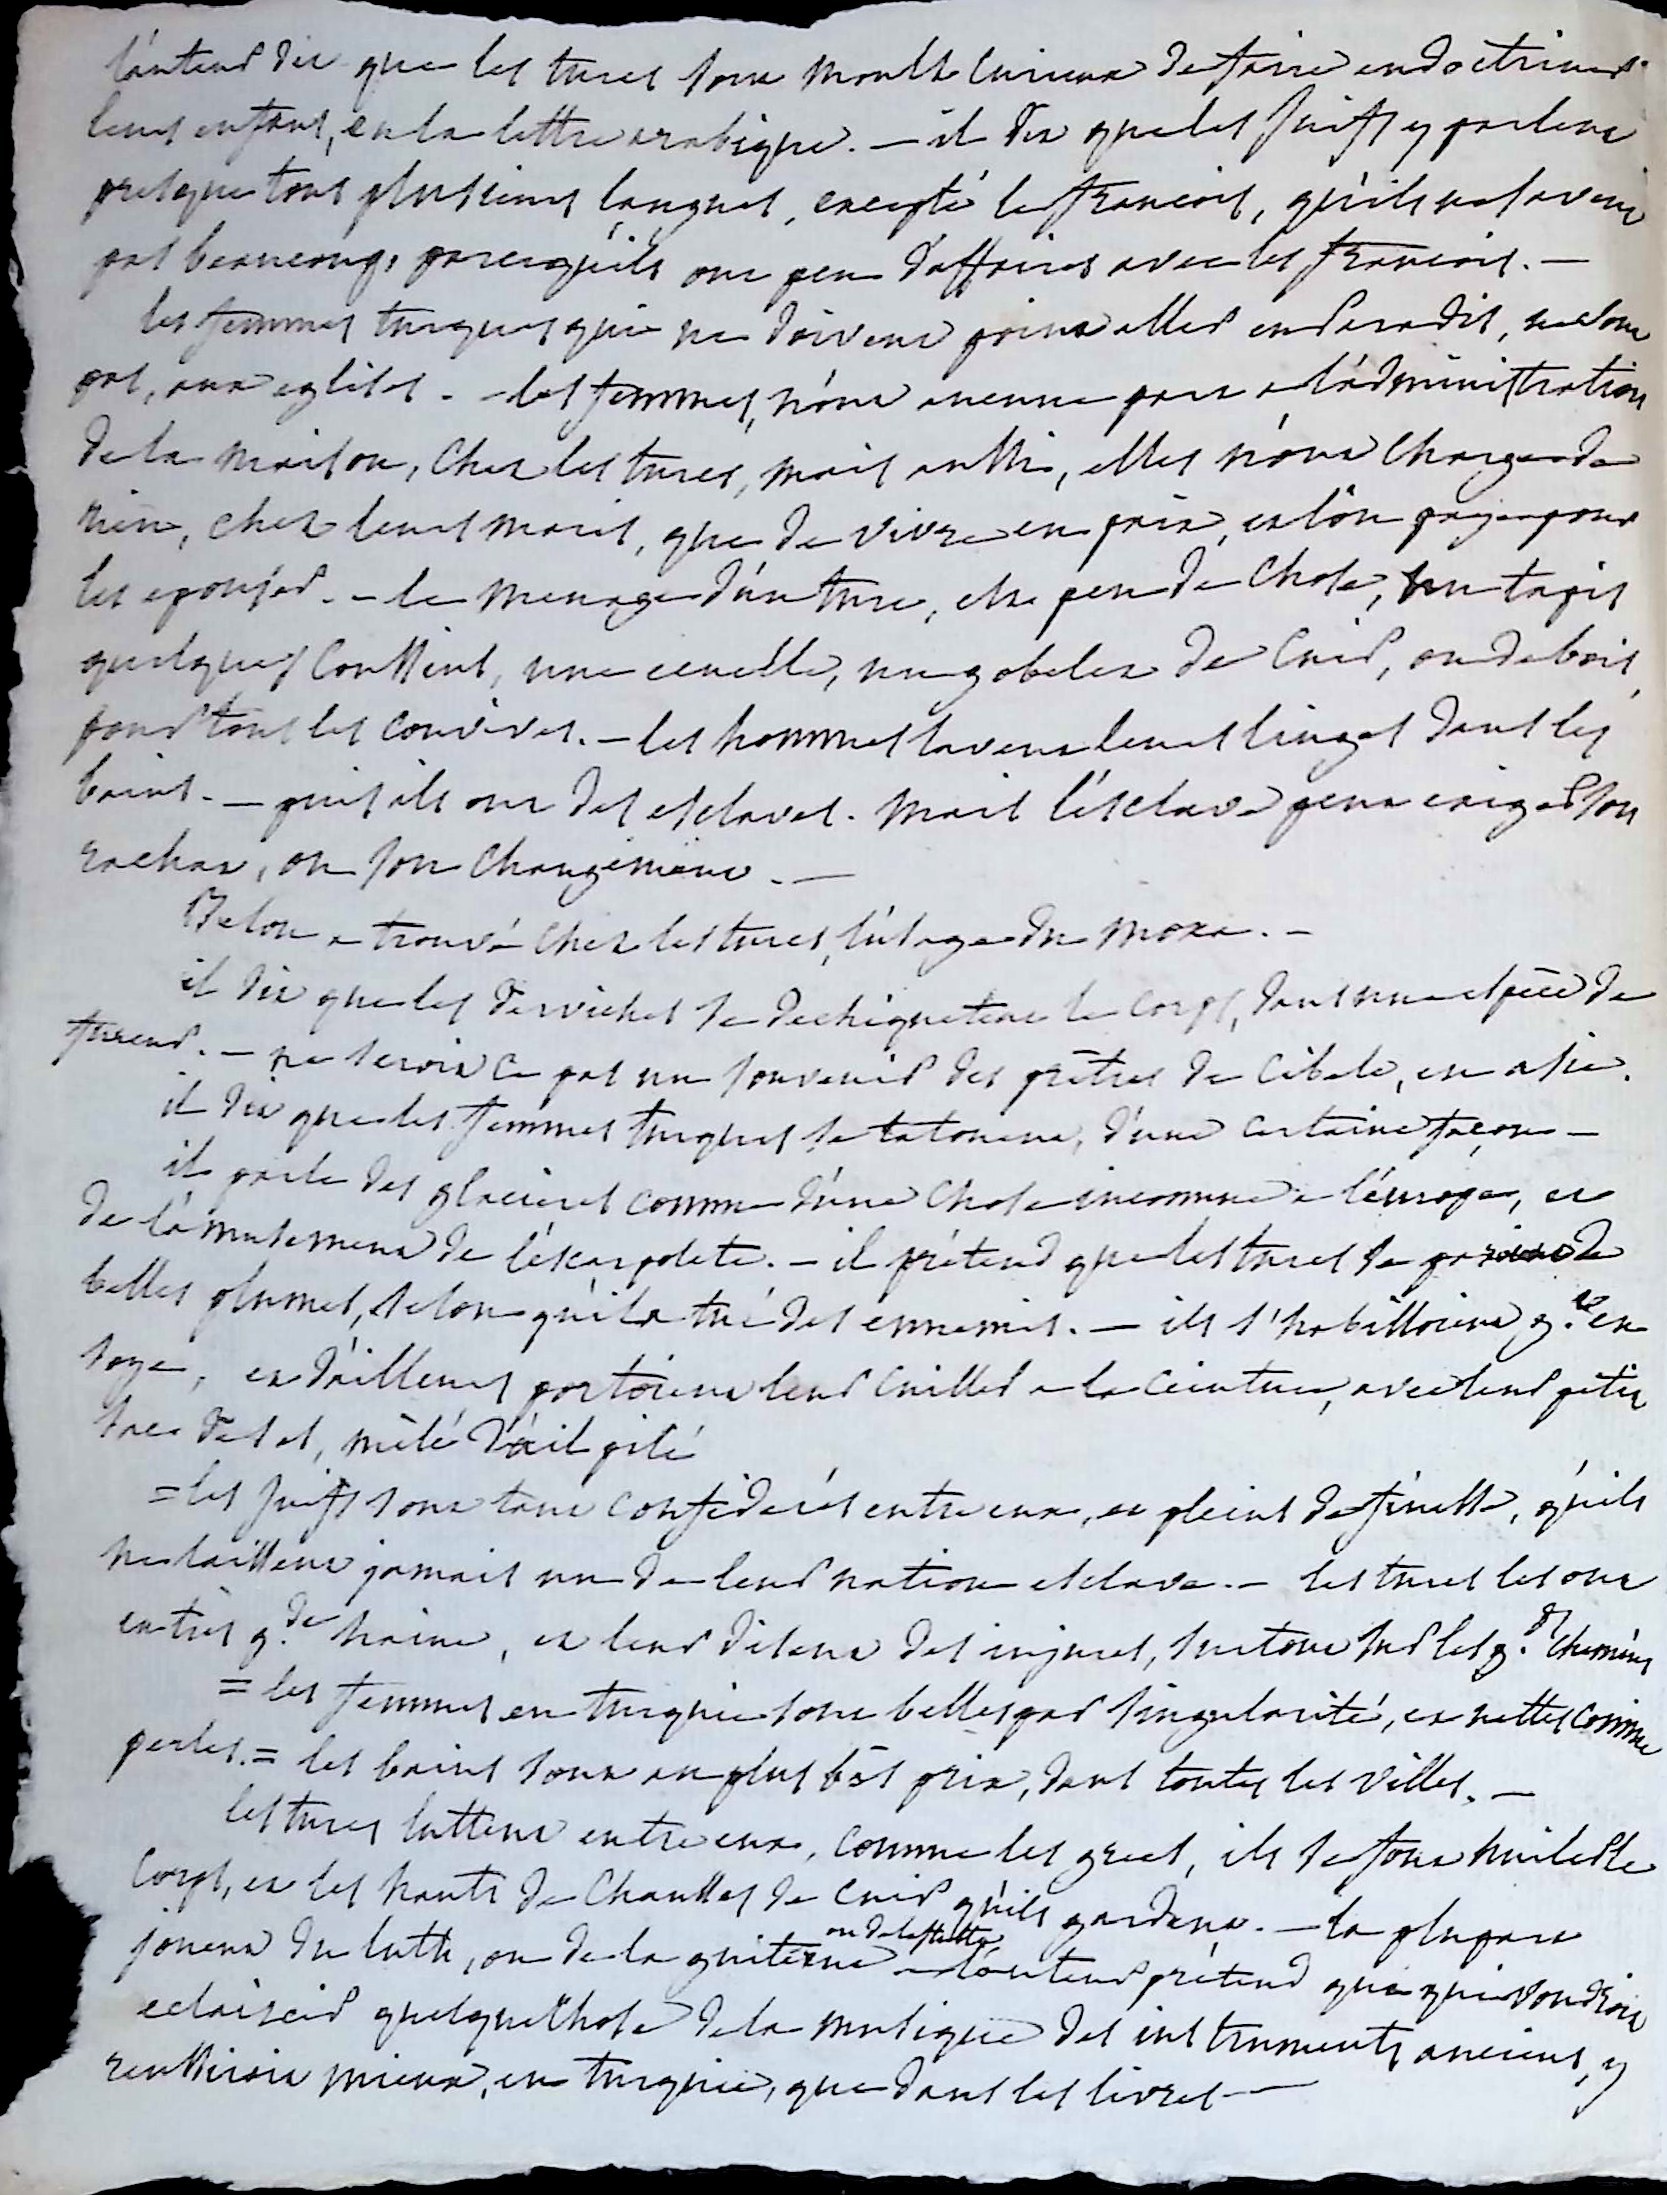 l'auteur dit que les turcs sont moult curieux de faire endoctriner
leurs enfans, en la lettre arabique. — il dit que les juifs y parlent
presque tous plusieurs langues, excepté le françois, qu'ils ne savent
pas beaucoup, parcequ'ils ont peu d'affaires avec les françois. —
les femmes turques qui ne doivent point aller en Paradis, ne vont
pas, aux eglises. — les femmes, n'ont aucune part a l'administration
de la maison, chez les turcs, mais aussi, elles n'ont charge de
rien, chez leurs maris, que de vivre en paix, et l'on paye pour
les epouser. — le menage d'un turc, est peu de chose, un tapis
quelques coussins, une ecuelle, un gobelet de cuir, ou de bois,
pour tous les convives. — les hommes lavent leurs linges dans les
bains. — puis ils ont des esclaves. mais l'esclave peut exiger son
rachat, ou son changement. —
Belon a trouvé chez les turcs, l'usage du moxa. —
il dit que les derviches se dechiquetent le corps, dans une espèce de
fureur. — ne seroit ce pas un souvenir des prêtres de Cibele, en asie.
il dit que les femmes turques se tatouent, d'une certaine façon —
il parle des glacieres comme d'une chose inconnue a l'europe, et
de l'amusement de l'escarpolete. — il prétend que les turcs se de
belles plumes, selon qu'il a tué des ennemis. — ils s'habilloient en
soye, et d'ailleurs portoient leur cuiller a la ceinture, avec leur petit
sac de sel, mêlé d'ail pilé
= les juifs sont tant confiderés entre eux, et pleins de finesse, qu'ils
ne laissent jamais un de leur nation esclave. — les turcs les ont
en très g.de haine, et leur disent des injures, surtout sur les g.ds chemins
= les femmes en turquie sont belles par singularité, et nettes comme
perles. = les bains sont au plus bas prix, dans toutes les villes. —
les turcs luttent entre eux, comme les grecs, ils se font huiler le
corps, et les hauts de chausses de cuir qu'ils gardent. — la plupart
jouent du luth, ou de la guiterne ou de la flutte — l'auteur prétend que qui voudroit
eclaircir quelque chose de la musique des instruments anciens, y
reussiroit mieux, en turquie, que dans les livres —